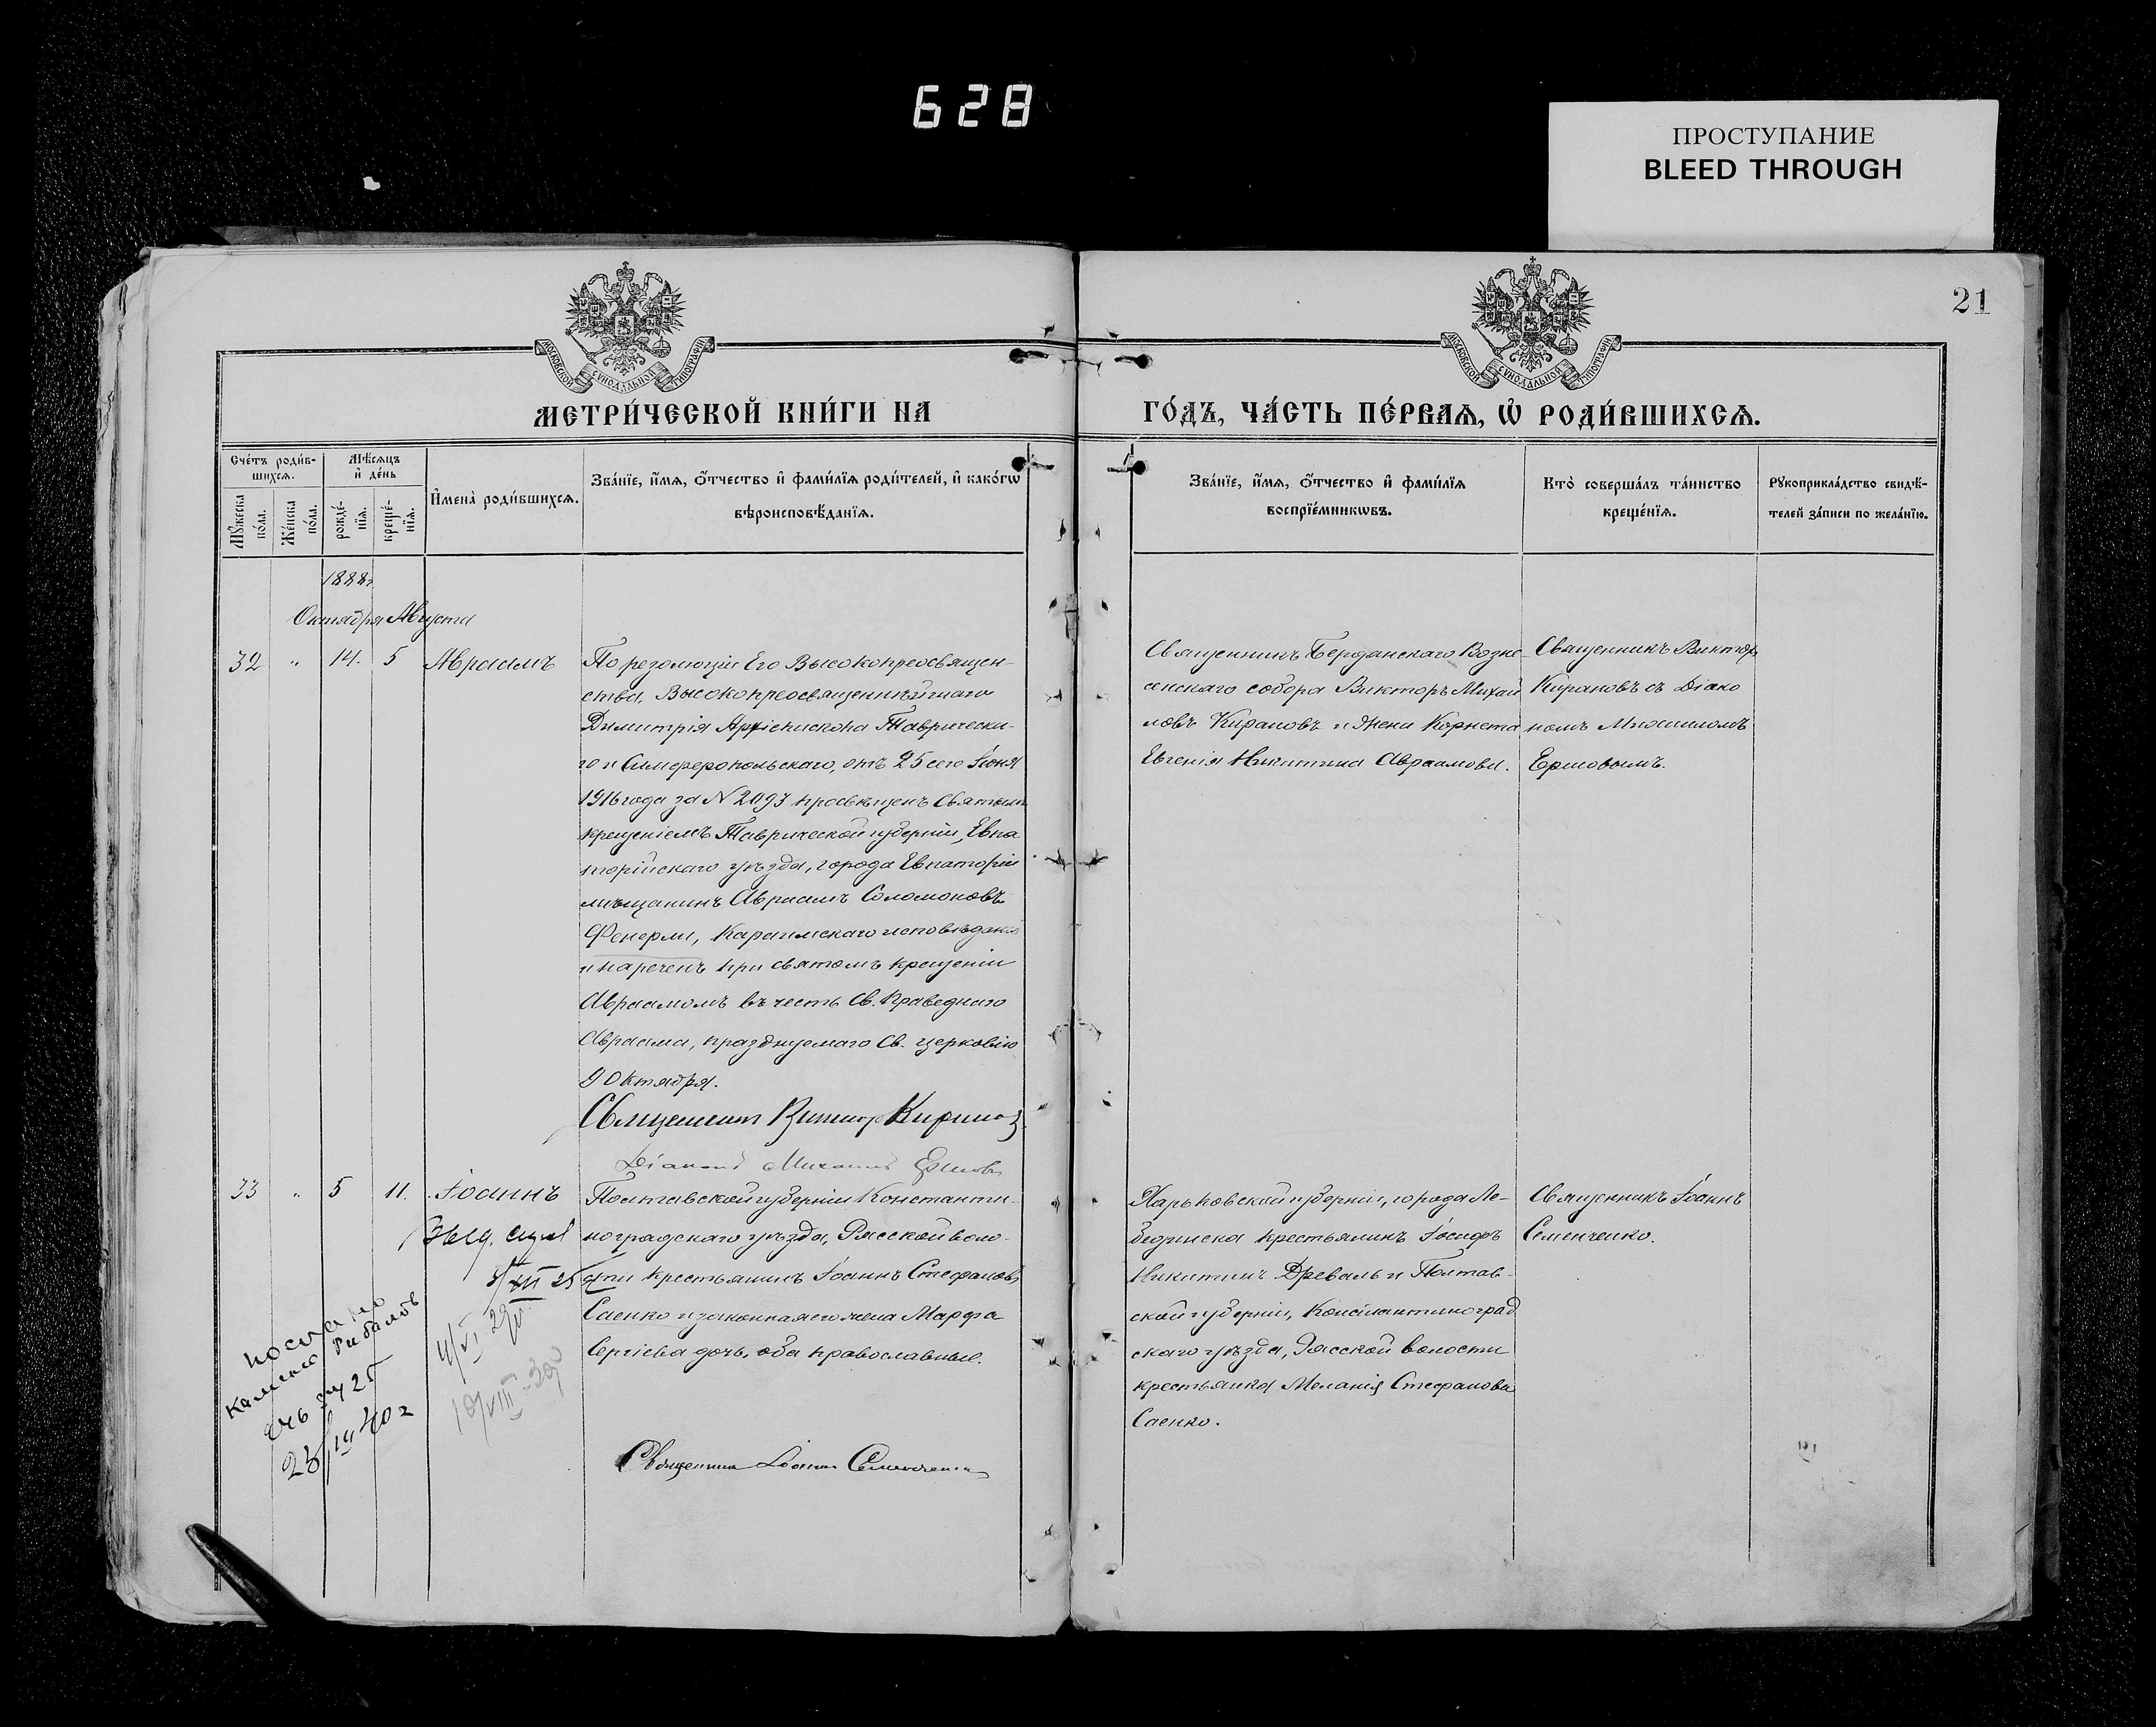 628
ПРОСТУПАНИЕ
BLEED THROUGH
21
МОСКОВСКОЙ СѴНОДАЛЬНОЙ ТИПОГРАФІИ
МОСКОВСКОЙ СѴНОДАЛЬНОЙ ТИПОГРАФІИ
МЕТРИ́ЧЕСКОЙ КНИ́ГИ НА
ГО́ДЪ, ЧА́СТЬ ПЕ́РВАѦ, Ѡ҆ РОДИ́ВШИХСѦ.
Сче́тъ роди́в-
шихсѧ.
Мѣ́сѧцъ
и҆ де́нь
Мꙋ́жеска
по́ла.
Же́нска
по́ла.
рожде́-
нїѧ.
креще́-
нїѧ.
И҆мена̀ роди́вшихсѧ.
Зва́нїе, и҆́мѧ, ѻ҆́тчество и҆ фами́лїѧ роди́телей, и҆ како́гѡ
вѣроисповѣ́данїѧ.
Зва́нїе, и҆́мѧ, ѻ҆́тчество и҆ фами́лїѧ
воспрїе́мникѡвъ.
Кто̀ соверша́лъ та́инство
креще́нїѧ.
Рꙋкоприкла́дство свидѣ́-
телей за́писи по жела́нїю.
1888г
Октября Августа
32 " 14. 5 Авраамъ
По резолюціи Его Высокопреосвящен-
ства, Высокопреосвященнѣйшаго
Димитрія Архіепископа Таврическа-
го и Симферопольскаго, отъ 25 сего Іюня
1916 года за N 2097 просвѣщенъ Святымъ
крещеніемъ Таврической губерніи, Евпа
торійскаго уѣзда, города Евпаторіи
мѣщанинъ Авраамъ Соломоновъ
Фенерли, Караимскаго исповѣданія
и нареченъ при святомъ крещеніи
Авраамомъ въ честь Св. Праведнаго
Авраама, празднуемаго Св. церковію
9 Октября.
Священникъ Викторъ Кирановъ
Діаконъ Михаилъ Ершовъ
Священникъ Бердянскаго Возне-
сенскаго собора Викторъ Михай
ловъ Кирановъ и жена Корнета
Евгенія Никитина Авраамова.
Священникъ Викторъ
Кирановъ съ Діако
номъ Михаиломъ
Ершовымъ.
33 " 5 11. Іоаннъ
Полтавской губерніи Константи-
ноградскаго уѣзда, Рясской воло-
сти крестьянинъ Іоаннъ Стефановъ
Саенко и законная его жена Марфа
Сергіева дочь, оба православные.
Священникъ Іоаннъ Семенченко
Харьковской губерніи, города Ле-
бедынска крестьянинъ Іосифъ
Никитинъ Древаль и Полтав-
ской губерніи, Константиноград
скаго уѣзда, Рясской волости
крестьянка Меланія Стефанова
Саенко.
Священникъ Іоаннъ
Семенченко.